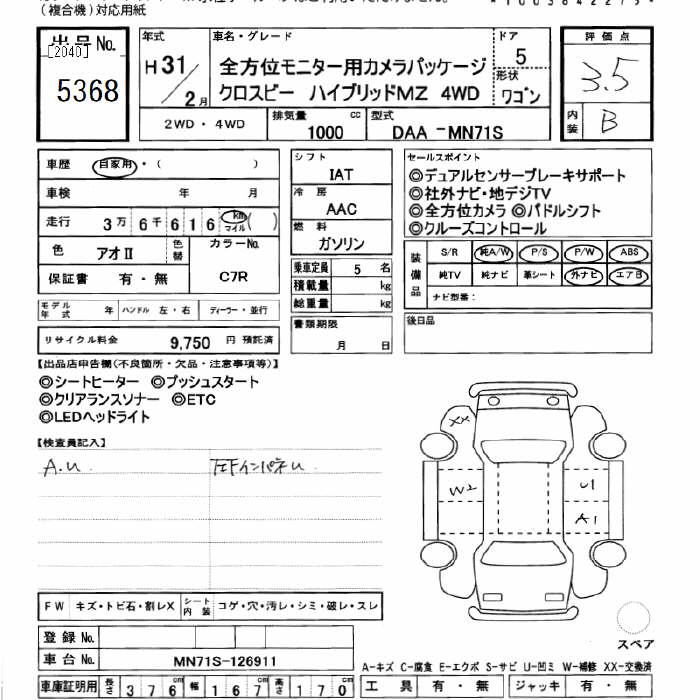 (複合機)対応用紙
出品No.
[2040]
5368
年式
H 31/2月
車名・グレード
全方位モニター用カメラパッケージ
クロスビー ハイブリッドMZ 4WD
ドア
5
形状
ワゴン
評価点
3.5
内装
B
2WD・4WD
排気量
1000 cc
型式
DAA-MN71S
車歴 自家用・( )
車検 年 月
走行 3万6千616 km マイル ( )
色 アオⅡ
色替
カラーNo.
C7R
保証書 有・無
モデル年式 年
ハンドル 左・右
ディーラー・並行
リサイクル料金 9,750 円 預託済
シフト
IAT
冷房
AAC
燃料
ガソリン
乗車定員 5 名
積載量 kg
総重量 kg
書類期限
月 日
セールスポイント
◎デュアルセンサーブレーキサポート
◎社外ナビ・地デジTV
◎全方位カメラ ◎パドルシフト
◎クルーズコントロール
装備品
S/R 純A/W P/S P/W ABS
純TV 純ナビ 革シート 外ナビ エアB
ナビ型番:
後日品
【出品店申告欄(不良箇所・欠品・注意事項等)】
◎シートヒーター ◎プッシュスタート
◎クリアランスソナー ◎ETC
◎LEDヘッドライト
【検査員記入】
A.u.
FW キズ・トビ石・割レX
シート内装 コゲ・穴・汚レ・シミ・破レ・スレ
登録No.
車台No. MN71S-126911
車庫証明用 長さ 376cm 幅 167cm 高さ 170cm
XX
W2
U1
A1
スペア
A-キズ C-腐食 E-エクボ S-サビ U-凹ミ W-補修 XX-交換済
工具 有・無 ジャッキ 有・無